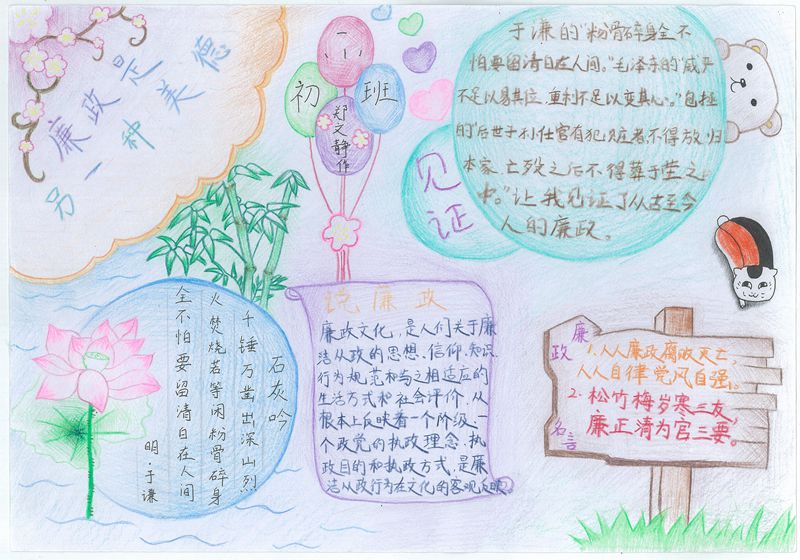 廉政是
另一种美德
初
班
郑文静作
于谦的"粉骨碎身全不
怕要留清白在人间。"毛泽东的"威严
不足以易其位,重利不足以变其心。"包拯
的"后世子孙仕官有犯赃者,不得放归
本家,亡殁之后不得葬于茔之
中。"让我见证了从古至今
人的廉政。
见证
石灰吟
千锤万凿出深山烈
火焚烧若等闲粉骨碎身
全不怕要留清白在人间
明·于谦
说廉政
廉政文化,是人们关于廉
洁从政的思想、信仰、知识、
行为规范和与之相适应的
生活方式和社会评价,从
根本上反映着一个阶级、一
个政党的执政理念、执
政目的和执政方式,是廉
洁从政行为在文化的客观反映。
廉政名言
1.人人廉政腐败灭亡,
人人自律党风自强。
2.松竹梅岁寒三友,
廉正清为官三要。